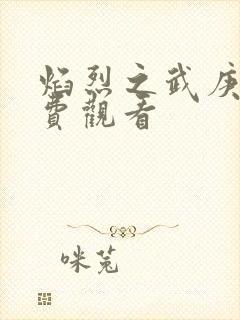 焰烈之武庚
費觀看
咪兔